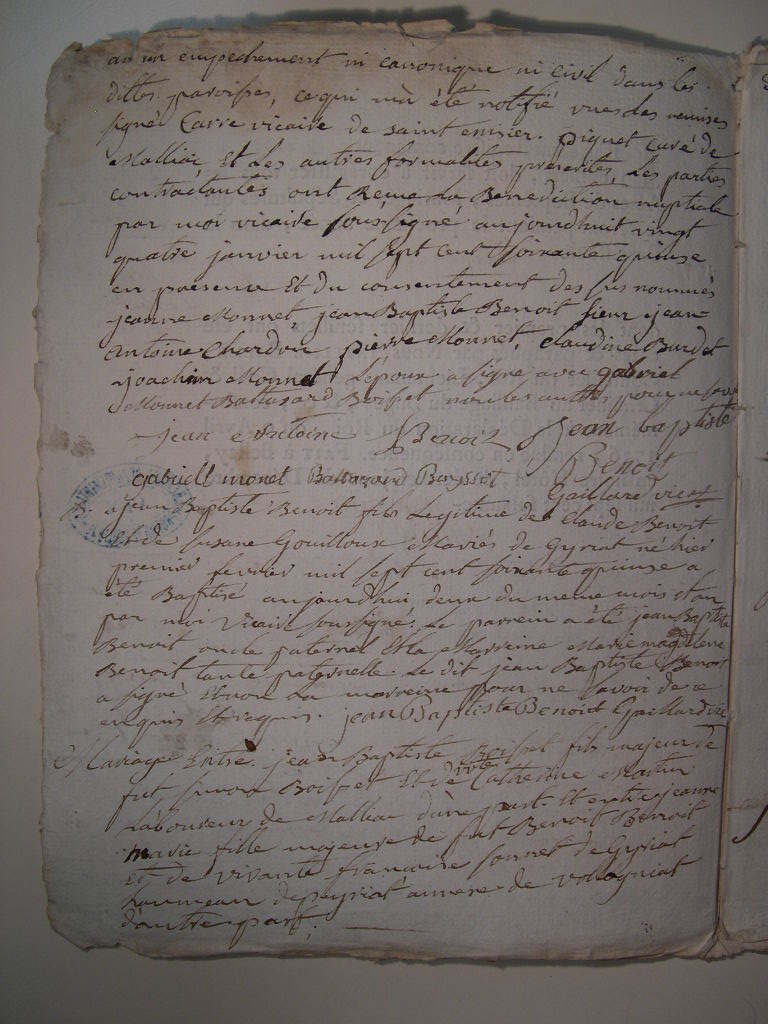 aucun empechement ni canonique ni civil dans les
dittes paroisses, ce qui m'a été notifié vues des remises
signé Carre vicaire de saint piquet curé de
Malliac et les autres formalités prescrites, Les parties
contractantes ont Reçue La Benediction nuptiale
par moi vicaire soussigné aujourdhuit vingt
quatre janvier mil sept cent soixante quinse
en presence Et du consentement des sus nommés
jeanne Monnet jean Baptiste Benoit sieur jean-
Antoine Chardon pierre Monnet, Claudine Burdet
joachim Monnet L'époux a signé avec gabriel
Monnet Baltazard Boisset non les autres pour ne savoir
jean Antoine Benoit Jean baptiste
Benoit
gabriell monet Baltazard Boyssot
Gaillard vicai
B. jean Baptiste Benoit fils Legitime de Claude Benoit
Et de Susane Gouilloux Mariés de Gyriat né hier
premier fevrier mil sept cent soixante quinse a
été Baptisé aujourdhui deux du meme mois et an
par moi Vicaire soussigné. Le parrein a été jean Baptiste
Benoit oncle paternel Et la Marreine Marie magdelene
Benoit tante paternelle Le dit jean Baptiste Benoit
a signé et non La marreine pour ne savoir de ce
enquis Et requis. jean Baptiste Benoit Gaillard vic
Mariage Entre jean Baptiste Boisset fils majeur de
fut simon Boisset Et de vivte Catherine Martin
Laboureur de Malliac d'une part. Et entre jeanne
marie fille majeure de fut Benoit Benoit
Et de vivante françoise sonnet de Gyriat
hameau de peyriat annexe de Volognat
d'autre part.